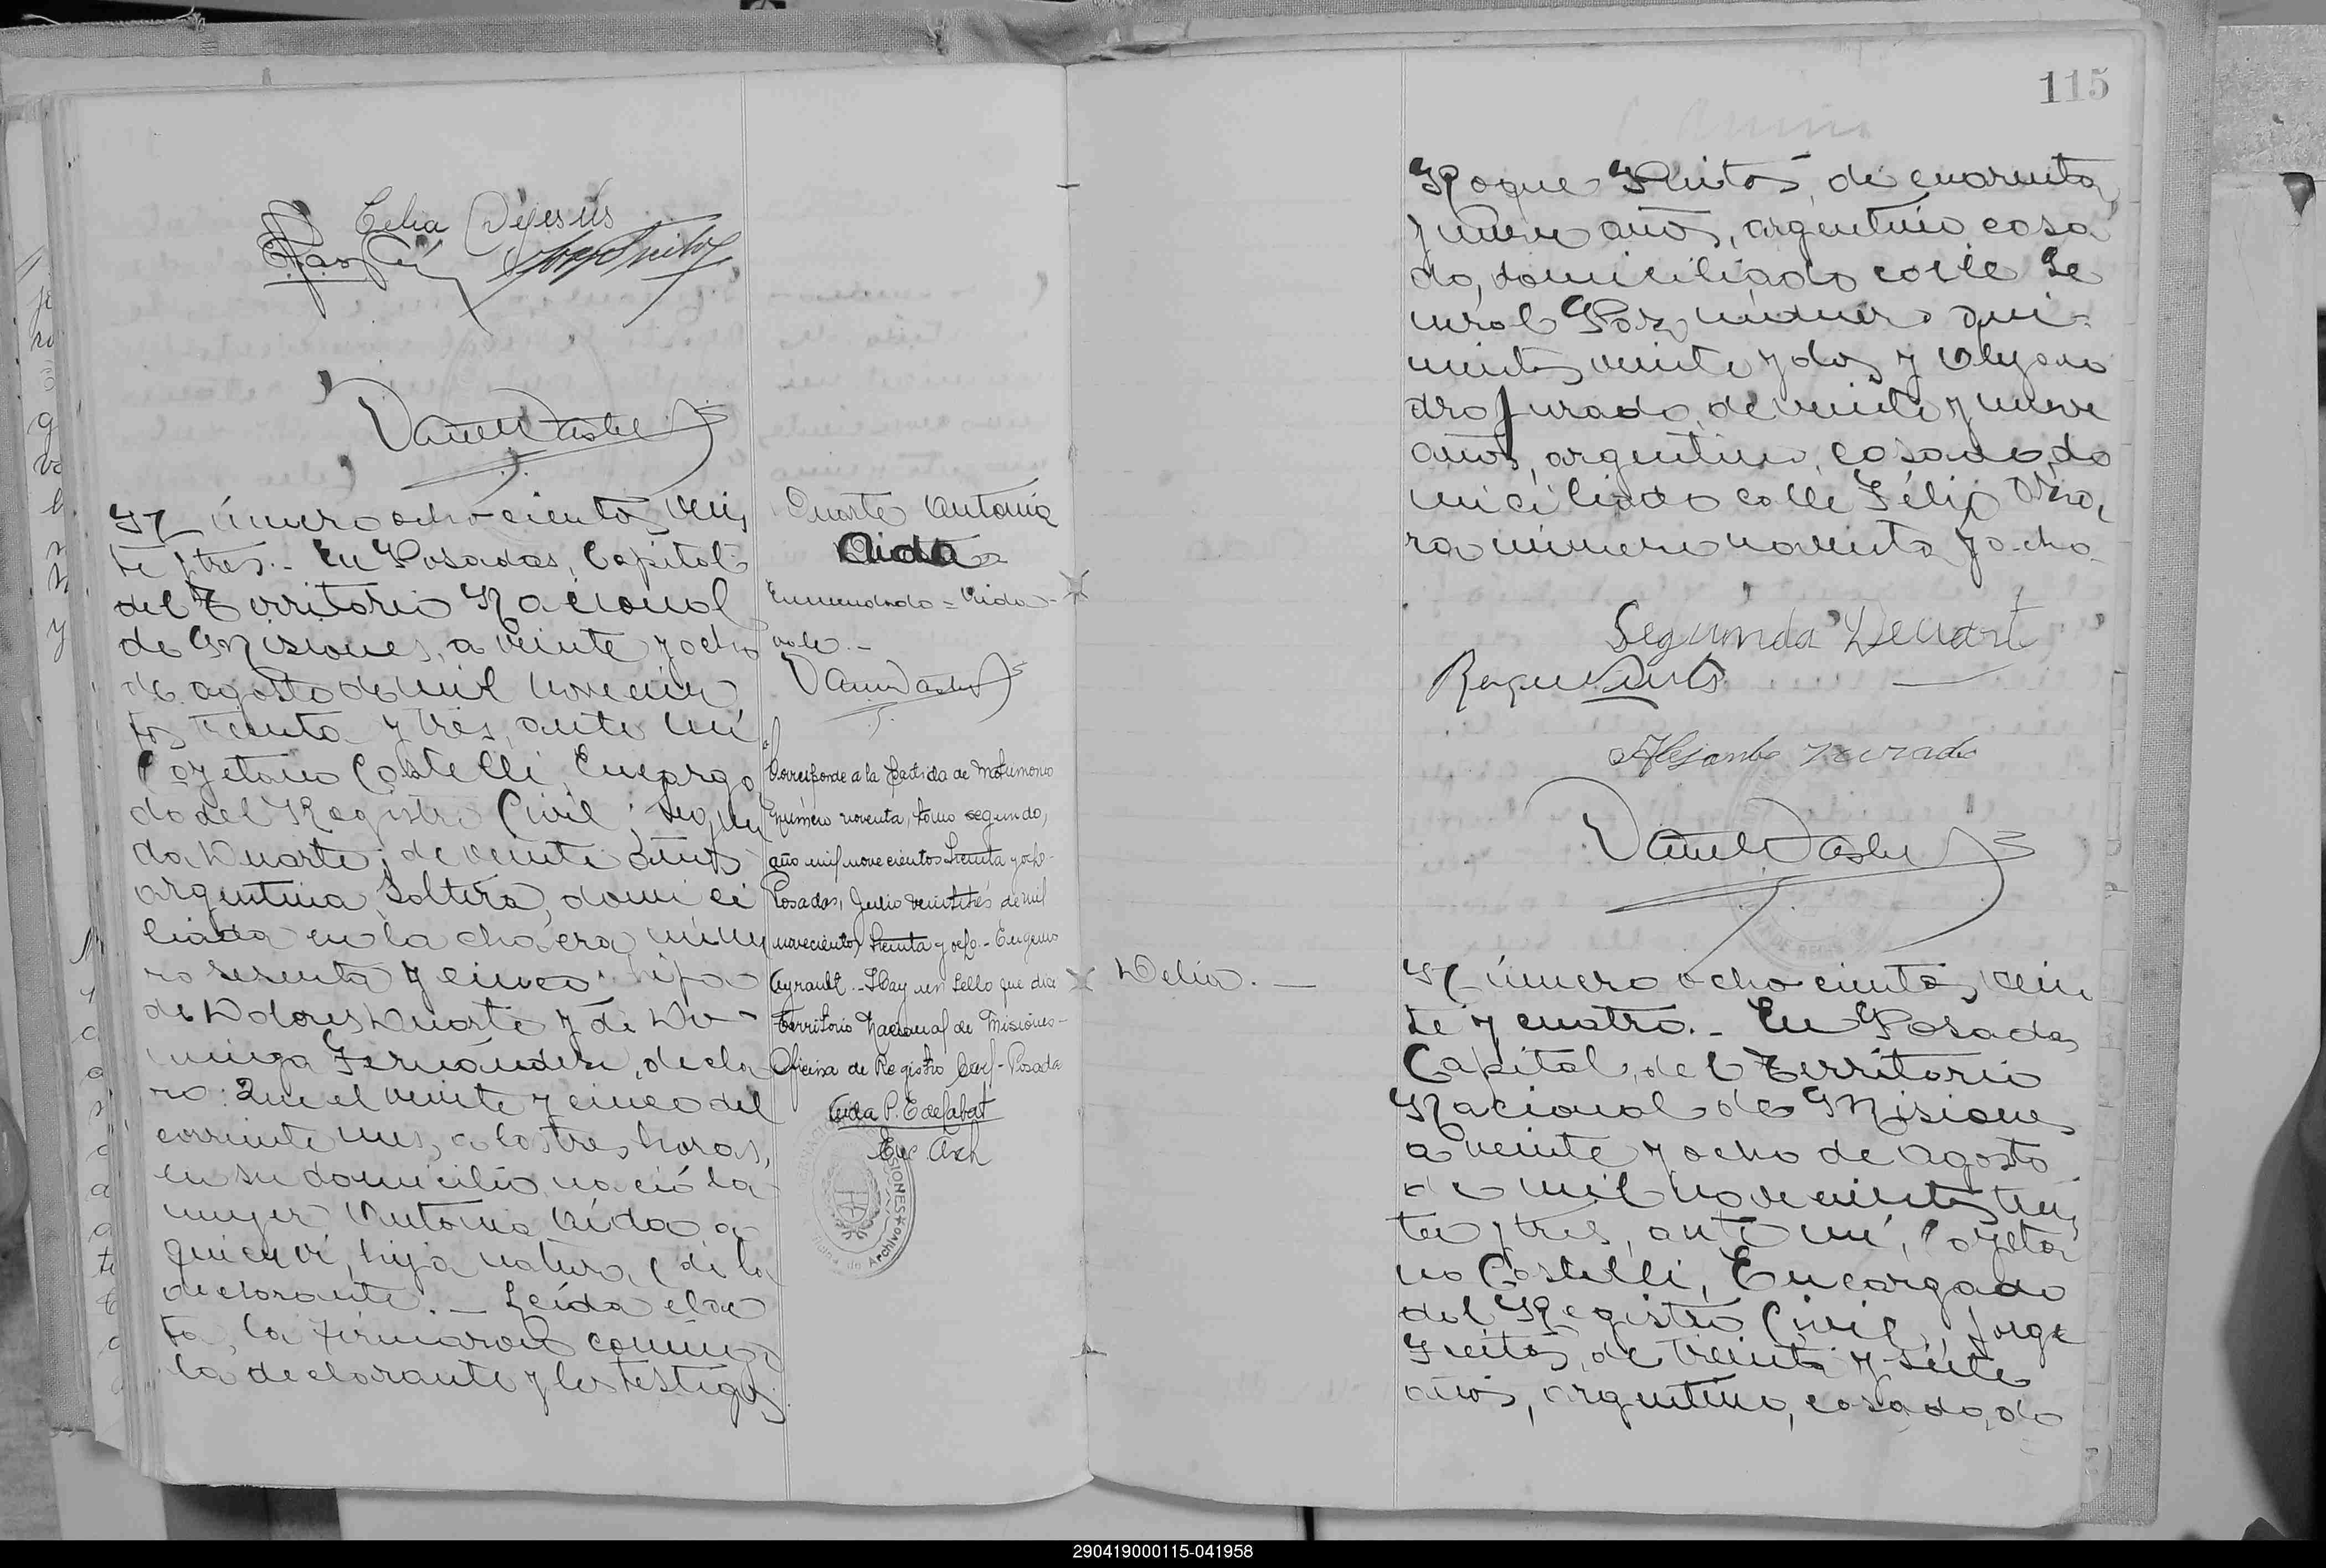 Celia Dejesús
Número ochocientos vein
te y tres.- En Posadas, Capital
del Territorio Nacional
de Misiones, a veinte y ocho
de agosto de mil novecien
tos treinta y tres, ante mí
Cayetano Castelli, Encarga
do del Registro Civil, Segun
da Duarte, de veinte años
argentina, soltera, domici
liada en la chacra núme
ro sesenta y cinco, hija
de Dolores Duarte y de Do-
minga Fernández, decla
ró: Que el veinte y cinco del
corriente mes, a las tres horas,
en su domicilio nació la
mujer Antonia Aída a
quien vi, hija natural de la
declarante.- Leída el ac
ta, la firmaron conmigo
la declarante y los testigos
Duarte Antonia
Aida
Enmendado = Aida -
vale.-
Corresponde a la Partida de Matrimonio
número noventa, tomo segundo,
año mil novecientos treinta y ocho-
Posadas, Julio veintitrés de mil
novecientos treinta y ocho.- Eugenio
Ayrault.- Hay un sello que dice
Territorio Nacional de Misiones-
Oficina de Registro Civil- Posadas
Enc. Arch
115
Roque Quitos, de cuarenta
y nueve años, argentino casa
do, domiciliado calle Ge
neral Paz número qui-
nientos veinte y dos y Alejan
dro Jurado, de veinte y nueve
años, argentino, casado, do
miciliado calle Félix Aza,
ra número noventa y ocho
Segunda Duart
Roque Quitos
Alejandro Jurado
Delia.-
Número ochocientos vein
te y cuatro.- En Posadas
Capital del Territorio
Nacional de Misiones
a veinte y ocho de Agosto
de mil novecientos trein
ta y tres, ante mí, Cayeta
no Castelli, Encargado
del Registro Civil, Jorge
Freitas, de treinta y siete
años, argentino, casado, do
290419000115-041958